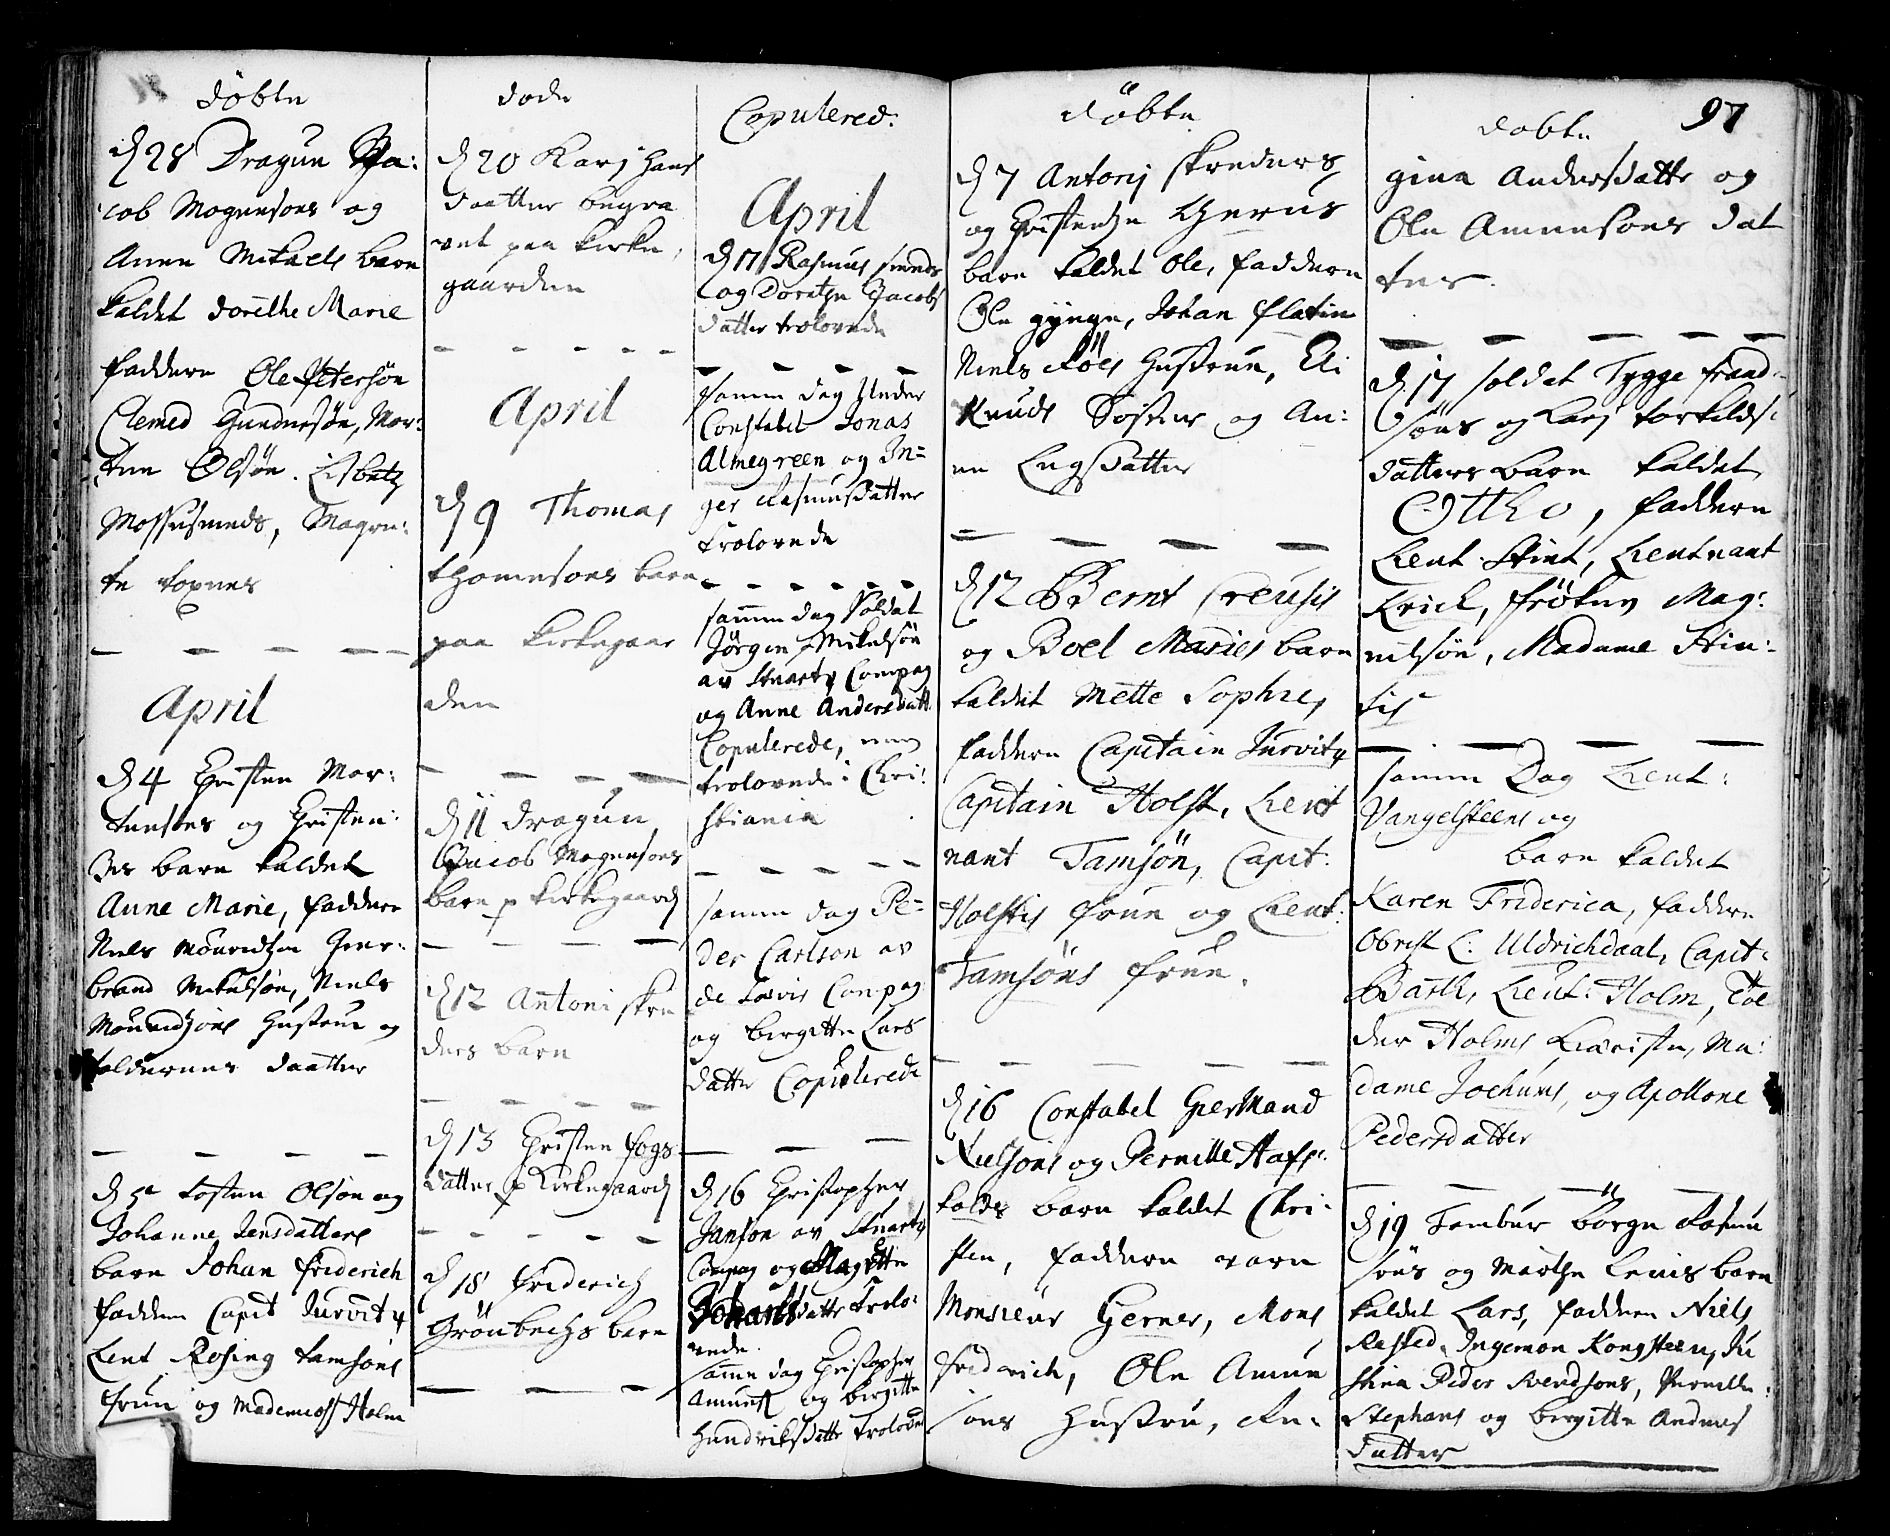 döbte
d 28 Dragun Ja:
cob Mogensons og
Anne Mikaels barn
kaldet dorethe Marie
faddere Ole Petersön
Clemed Gundersön, Mor:
ten Olsön. Lisbetz
Mossesmeds, Magre:
te
April
d 4 Christen Mor:
tensöns og Christen:
des barn kaldet
Anne Marie, faddere
Niels Mouridtzen
brand Mikelsön, Niels
Mouridsöns Hustrue og
tolderenes daatter
d 5 Tosten Olsön og
Johanne Jensdatters
barn Johan friderich
faddere Capit Jurvitz
Leut Rosing tamsöns
fruu og Mademois Holm
döde
d 20 Karj Hans
daatter begra
vet paa kirke,
gaarden
April
d 9 Thomas
thomesons barn
paa kirkegaar
den
d 11 dragun
Jacob Mogensons
barn p kirkegaard
d 12 Antoni skre
ders barn
d 13 Christen fogs
datter p Kirkegaard
d 18 friderich
Grönbechs barn
Copulered:
April
d 17 Rasmus
og Doretze Jacobs
datter trolovede
samme dag Under
Constabel Jonas
Almegreen og In=
ger Rasmusdatter
trolovede
samme dag Soldat
Jörgen Mikelsön
av Stuartz Compag
og Anne Andersdatt:
Copulerede,
trolovede i Chri:
stiania
samme dag Pe=
der Carlson av
de Compag
og birgitte Lars
datter Copulerede
d 16 Christopher
Janson av Stuartz
Compag og Magrette
datter trolo:
vede.
samme dag Christopher
Amunds og birgitte
Hendriksdatter trolovede
döbte
d 7 Antonj skreders
og Christentze
barn kaldet Ole, faddere
Ole gynge, Johan flatin
Niels Röes Hustrue, Eli
Knuds Söster, og An:
ne Engsdatter
d 12 Bernt Creusis
og Boel Maries barn
kaldet Mette Sophie,
faddere Capitain Jurvitz
Capitain Holst, Leut
nant Tamsön, Capit:
Holstis frue og Leut:
Tamsöns frue.
d 16 Constabel Giermand
Nielsons og Pernille
barn kaldet Chri:
sten, faddere vare
Monsieur Gerner, Mons
fridrich, Ole Amun
sons Hustru, Re:
97
döbte
gina Andersdatter og
Ole Amunsons dat
ter.
d 17 soldat Tygge frand=
söns og Karj torkilds:
datters barn kaldet
Ottho, faddere
Leut Stint, Leutnant
Krick, fröken Mag:
nilsön, Madame Stin:
tis
samme Dag Leut:
Vangelsteens og
barn kaldet
Karen Friderica, faddere
Obrist L: Uldrichdaal, Capit:
Barth, Leut: Holm, Tol
der Holms Kiæriste, Ma:
dame Jochums, og Apollone
Pedersdatter
d 19 Tambur Börge Rasmu
söns og Marthe Lenis barn
kaldet Lars, faddere Niels
Rasted, Ingemon Kongsteen, Ju
stina Peder Svendsons, Pernille
Stephans og birgitte Anders
datter